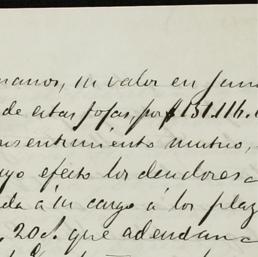 manos, su valor en jun
de estas fojas, por $151.116.
nsentimiento mutuo,
uyo efecto los deudores
da á su cargo á los plaz
20 d. que adeudan